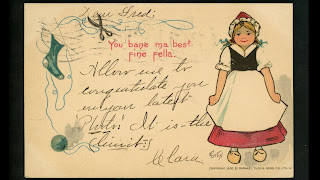 Dear Fred:
You bane ma best
fine fella.
Allow me to
congratulate you
on your latest
Photo! It is the
limit!
Clara
COPYRIGHT BY RAPHAEL TUCK & SONS CO. LTD. N.